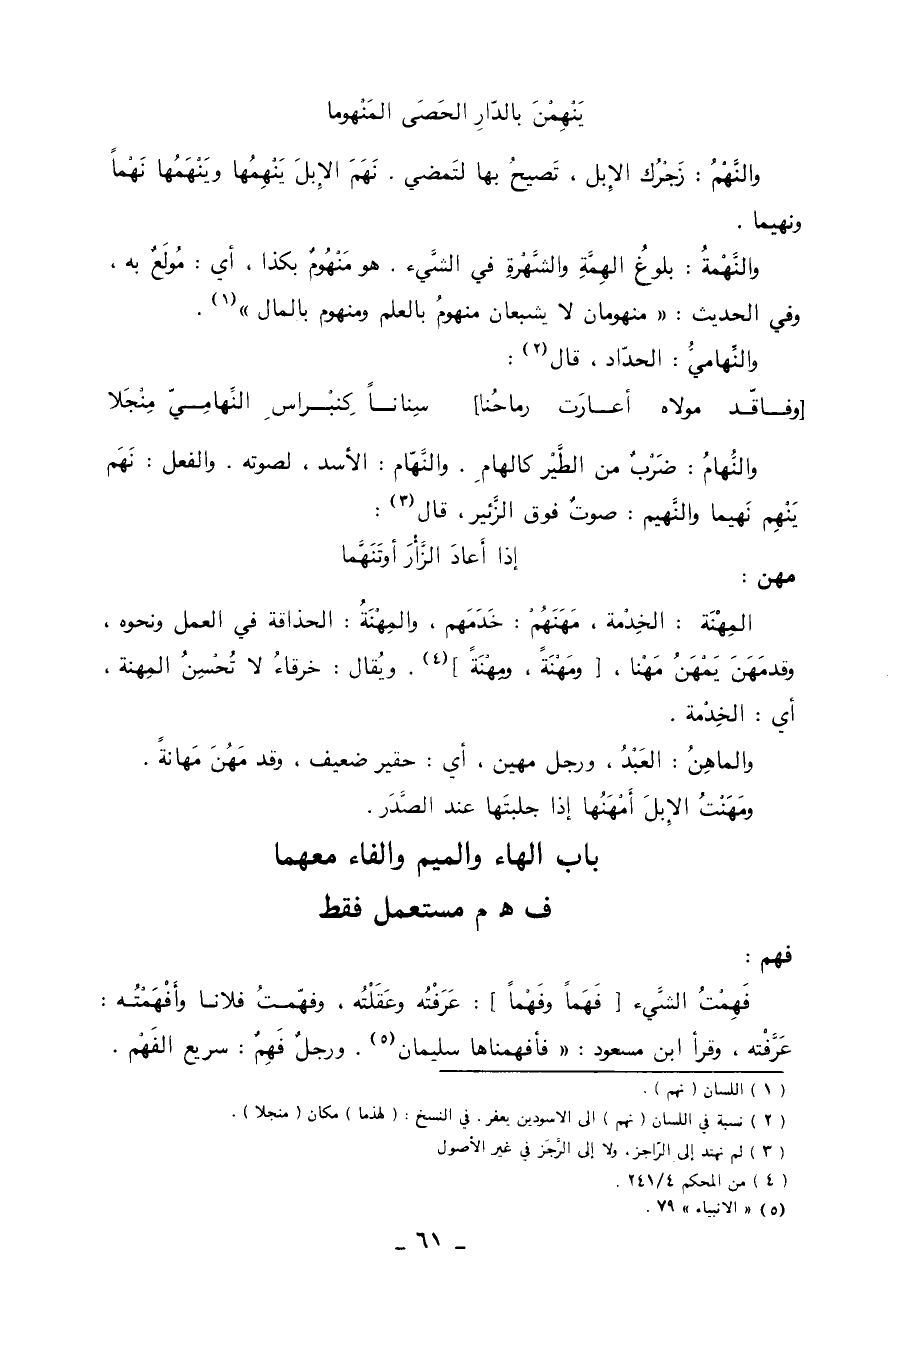 يَنْهِمْنَ بالدّارِ الحَصَى المَنْهوما
والنَّهْمُ : زَجْرُك الإبل ، تَصيحُ بها لتَمضي . نَهَمَ الإبلَ يَنْهِمُها ويَنْهَمُها نَهْماً
ونهيما .
والنَّهْمةُ : بلوغُ الهِمَّةِ والشَّهْرةِ في الشَّيء . هو مَنْهُومٌ بكذا ، أي : مُولَعٌ به ،
وفي الحديث : « منهومان لا يشبعان منهومُ بالعلم ومنهوم بالمال »(١) .
والنِّهاميُّ : الحدّاد ، قال(٢) :
[وفـاقـد مولاه أعـارَت رماحُنا] سِناناً كِنبْـراس ِ النَّهامِـيّ مِنْجَلا
والنُّهامُ : ضَرْبٌ من الطَّيْر كالهام ِ . والنَّهّام : الأسد ، لصوته . والفعل : نَهَم
يَنْهِم نَهيما والنَّهيم : صوتٌ فوق الزَّئير ، قال(٣) :
إذا أَعادَ الزَّأْرَ أوتَنَهَّما
مهن :
المِهْنَة : الخِدْمة ، مَهَنَهُمْ : خَدَمَهم ، والمِهْنَةُ : الحذاقة في العمل ونحوه ،
وقدمَهَنَ يَمْهَنُ مَهْنا ، [ ومَهْنَةً ، ومِهْنَةً ](٤) . ويُقال : خرقاءُ لا تُحْسِنُ المِهنة ،
أي : الخِدْمة .
والماهِنُ : العَبْدُ ، ورجل مهين ، أي : حقير ضعيف ، وقد مَهُنَ مَهانةً .
ومَهَنْتُ الإبلَ أَمْهَنُها إذا حلبتَها عند الصَّدَر .
باب الهاء والميم والفاء معهما
ف ه م مستعمل فقط
فهم :
فَهِمْتُ الشَّيء [ فَهَماً وفَهْماً ] : عَرَفْتُه وعَقَلْتُه ، وفهّمتُ فلانا وأَفْهَمْتُـه :
عَرَّفْته ، وقرأ ابن مسعود : « فأفهمناها سليمان(٥) . ورجلٌ فَهِمٌ : سريع الفَهْم .
( ١ ) اللسان ( نهم ) .
( ٢ ) نسبة في اللسان ( نهم ) الى الاسودين يعفر . في النسخ : ( لهذما ) مكان ( منجلا ) .
( ٣ ) لم نهتد إلى الرّاجز ، ولا إلى الرَّجَز في غير الأصول
( ٤ ) من المحكم ٢٤١/٤ .
(٥) « الانبياء » ٧٩ .
ـ ٦١ ـ